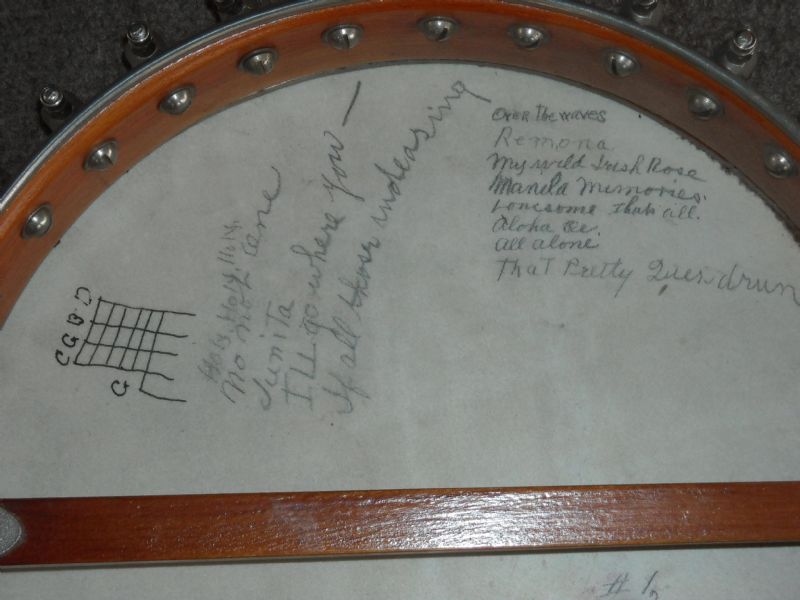 Over the waves
Remona
My wild Irish Rose
Manila Memories.
Lonesome thats all.
Aloha Oe.
all alone.
That Pretty
Holy, Holy, Holy,
No not one
Junita
I'LL go where you —
If all those
D
B
G
C
G
# 1/2